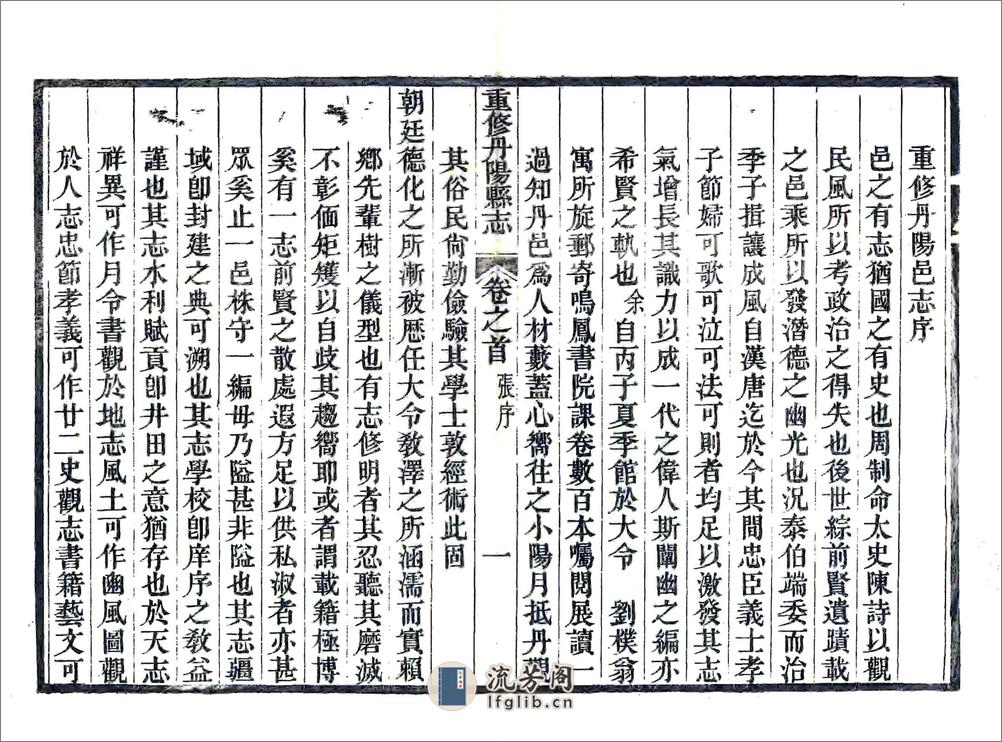 重修丹陽邑志序
邑之有志猶國之有史也周制命太史陳詩以觀
民風所以考政治之得失也後世綜前賢遺蹟載
之邑乘所以發潛德之幽光也況泰伯端委而治
季子揖讓成風自漢唐迄於今其間忠臣義士孝
子節婦可歌可泣可法可則者均足以激發其志
氣增長其識力以成一代之偉人斯闡幽之編亦
希賢之軌也余自丙子夏季館於大令　劉樸翁
寓所旋郵寄鳴鳳書院課卷數百本囑閱展讀一
過知丹邑爲人材藪蓋心嚮往之小陽月抵丹觀
其俗民尙勤儉驗其學士敦經術此固
重修丹陽縣志　卷之首　張序　一
朝廷德化之所漸被歷任大令敎澤之所涵濡而實賴
鄕先輩樹之儀型也有志修明者其忍聽其磨滅
不彰偭矩矱以自歧其趨嚮耶或者謂載籍極博
奚有一志前賢之散處遐方足以供私淑者亦甚
眾奚止一邑株守一編毋乃隘甚非隘也其志疆
域卽封建之典可溯也其志學校卽庠序之敎益
謹也其志水利賦貢卽井田之意猶存也於天志
祥異可作月令書觀於地志風土可作豳風圖觀
於人志忠節孝義可作廿二史觀志書籍藝文可
流芳阁
lfglib.cn